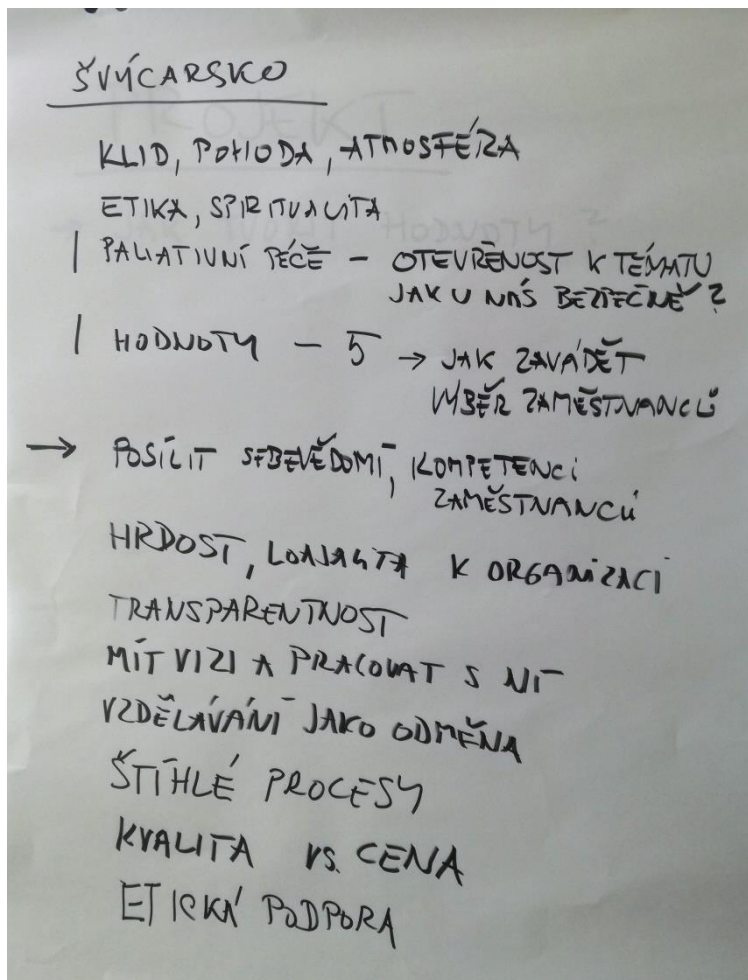 ŠVÝCARSKO
KLID, POHODA, ATMOSFÉRA
ETIKA, SPIRITUALITA
| PALIATIVNÍ PÉČE – OTEVŘENOST K TÉMATU
JAK U NÁS BEZPEČNĚ?
| HODNOTY – 5 → JAK ZAVÁDĚT
VÝBĚR ZAMĚSTNANCŮ
→ POSÍLIT SEBEVĚDOMÍ, KOMPETENCI
ZAMĚSTNANCŮ
HRDOST, LOAJALITA K ORGANIZACI
TRANSPARENTNOST
MÍT VIZI A PRACOVAT S NÍ
VZDĚLÁVÁNÍ JAKO ODMĚNA
ŠTÍHLÉ PROCESY
KVALITA VS. CENA
ETICKÁ PODPORA